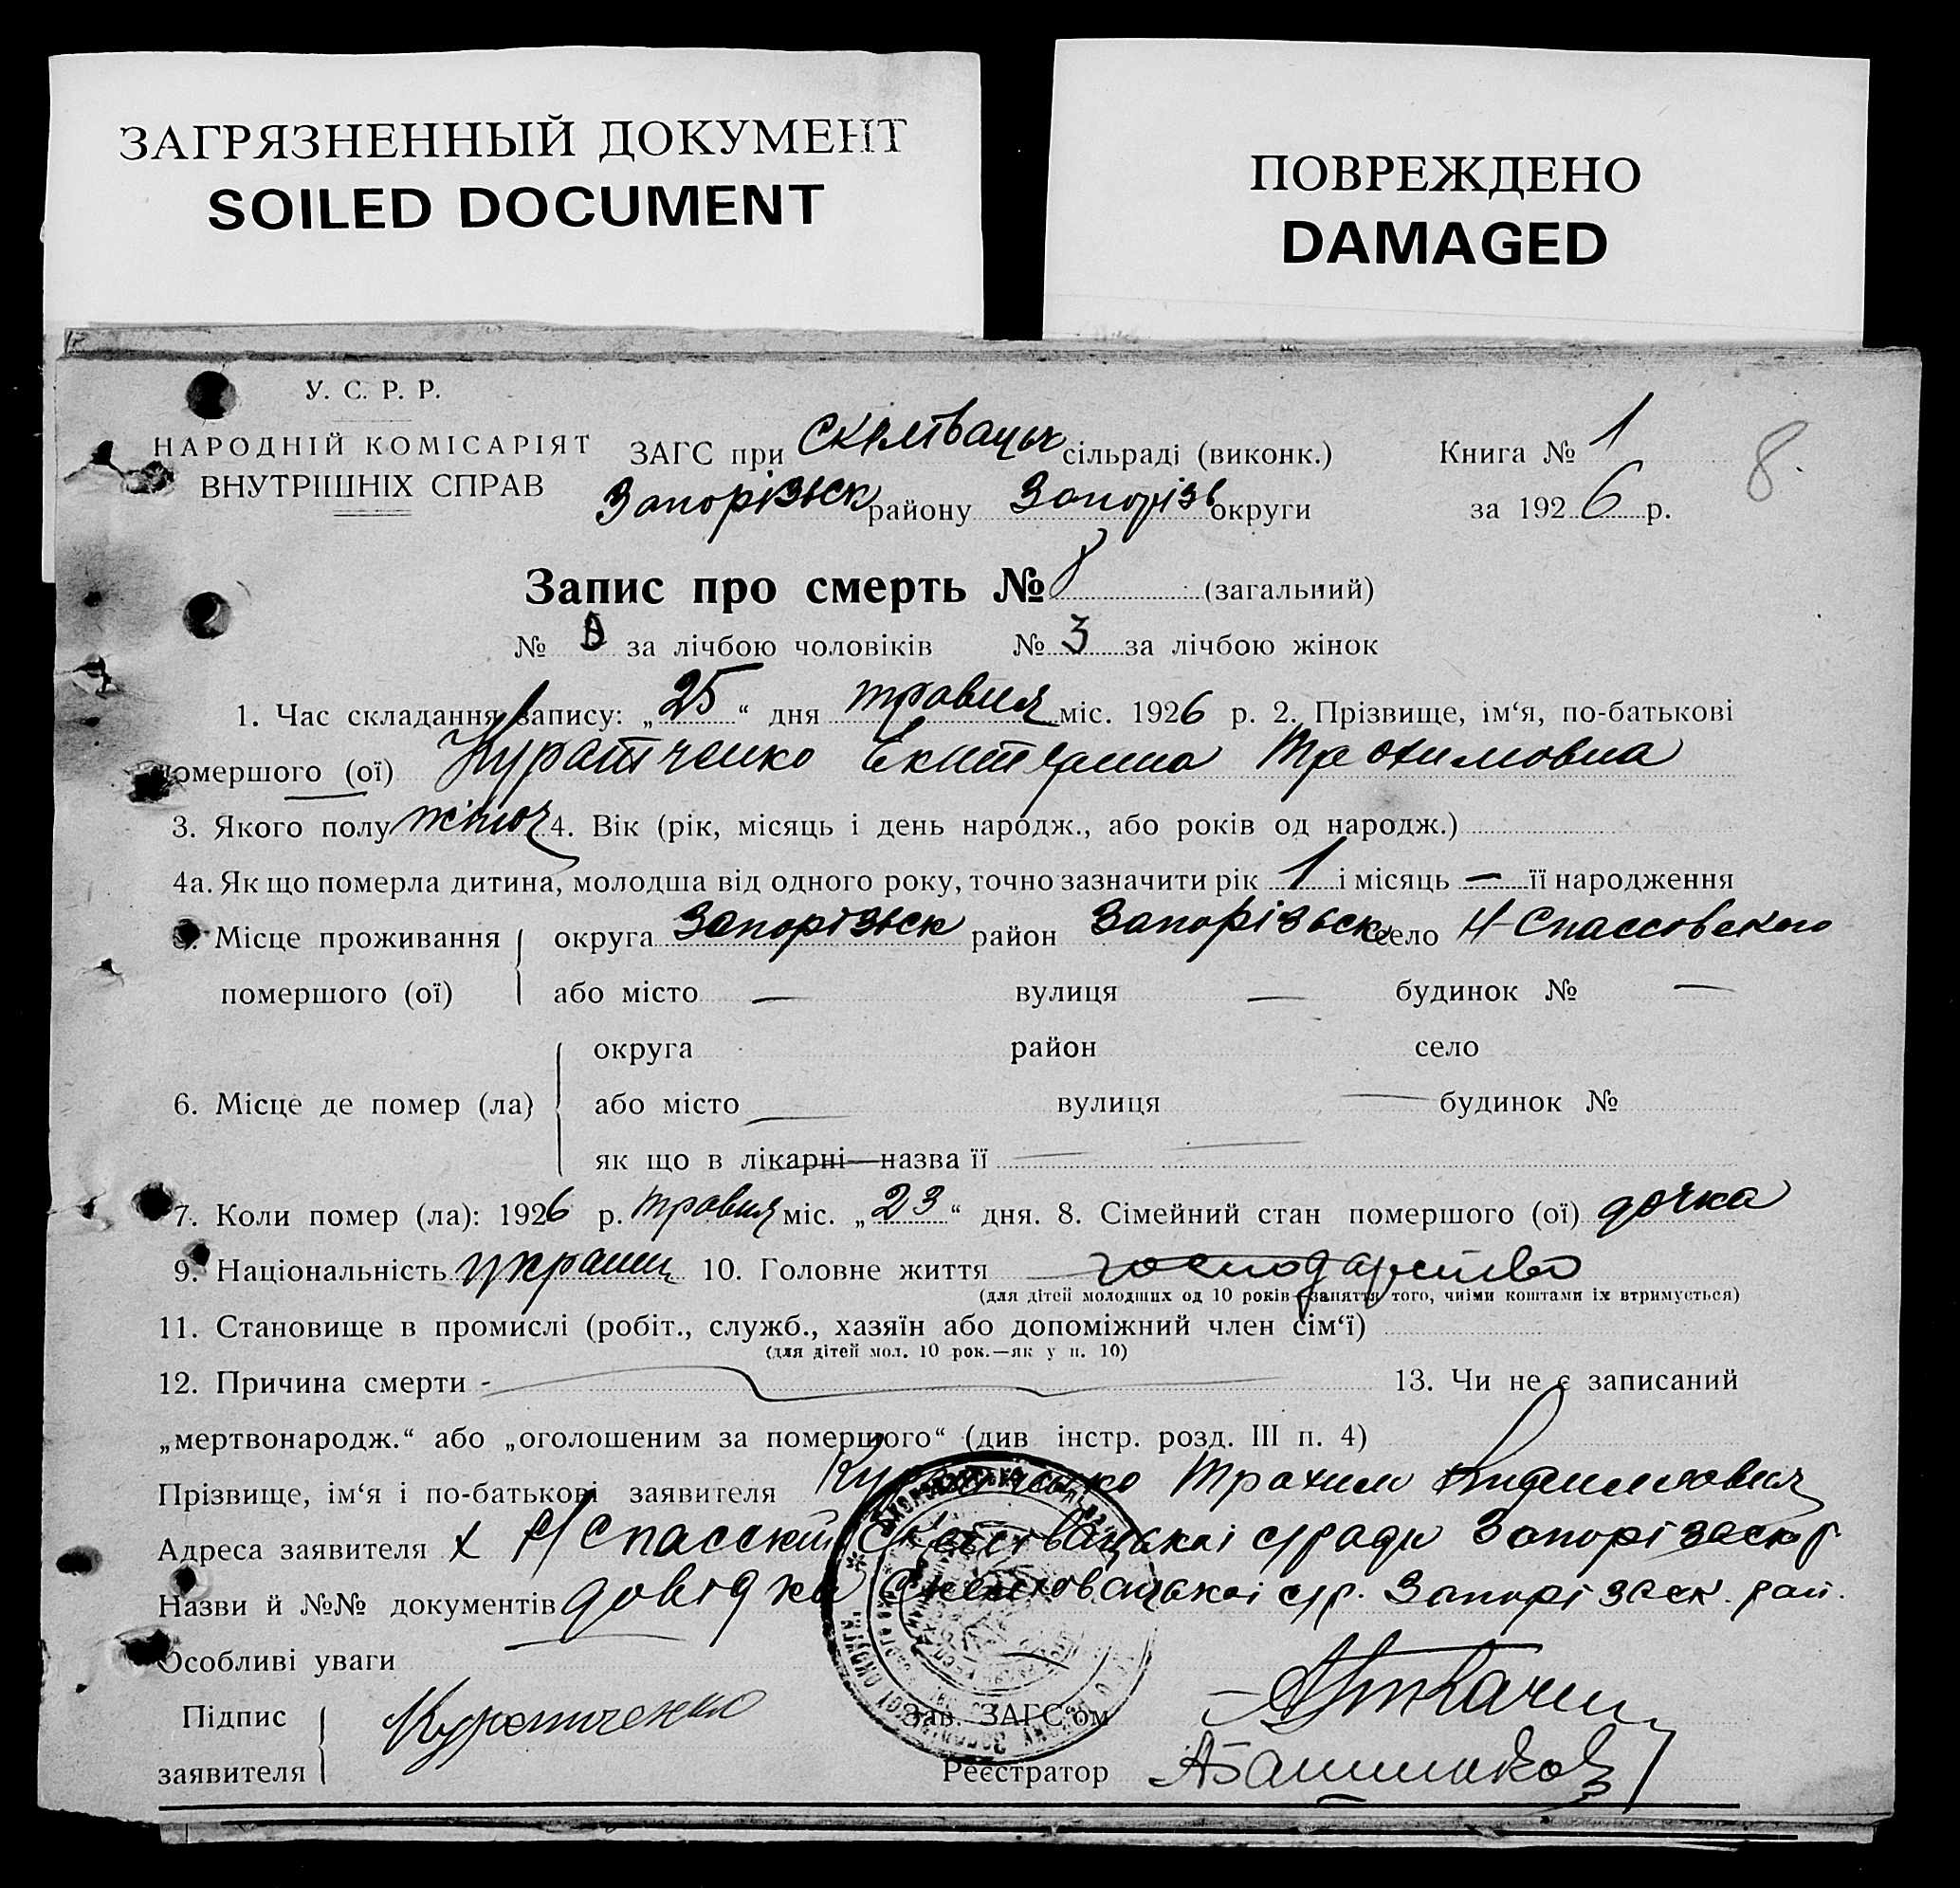 ЗАГРЯЗНЕННЫЙ ДОКУМЕНТ
SOILED DOCUMENT
ПОВРЕЖДЕНО
DAMAGED
У. С. Р. Р.
НАРОДНІЙ КОМІСАРІЯТ
ВНУТРІШНІХ СПРАВ
ЗАГС при сільраді (виконк.)
Запорізьск району Запорізь округи
Книга № 1
за 1926 р.
8.
Запис про смерть № (загальний)
№ за лічбою чоловіків № 3 за лічбою жінок
1. Час складання запису: „25“ дня травня міс. 1926 р. 2. Прізвище, ім‘я, по-батькові
помершого (ої) Куратченко Трохимовна
3. Якого полу жіноч 4. Вік (рік, місяць і день народж., або років од народж.)
4а. Як що померла дитина, молодша від одного року, точно зазначити рік 1 і місяць — її народження
5. Місце проживання округа Запорізьск район Запорізьск село Н-Спассовского
помершого (ої) або місто — вулиця — будинок № —
округа район село
6. Місце де помер (ла) або місто — вулиця — будинок №
як що в лікарні—назва її
7. Коли помер (ла): 1926 р. травня міс. „23“ дня. 8. Сімейний стан помершого (ої) дочка
9. Національність україн 10. Головне життя господарство
(для дітей молодших од 10 років—заняття того, чиїми коштами їх втримується)
11. Становище в промислі (робіт., служб., хазяїн або допоміжний член сім‘ї)
(для дітей мол. 10 рок.—як у п. 10)
12. Причина смерти - 13. Чи не є записаний
„мертвонародж.“ або „оголошеним за помершого“ (див інстр. розд. III п. 4)
Прізвище, ім‘я і по-батькові заявителя Куратченко Трохим
Адреса заявителя х Н/Спасский с/ради
Назви й №№ документів довідка с/р. рай.
Особливі уваги
Підпис
заявителя
Куратченко
Зав. ЗАГС‘ом
Реєстратор